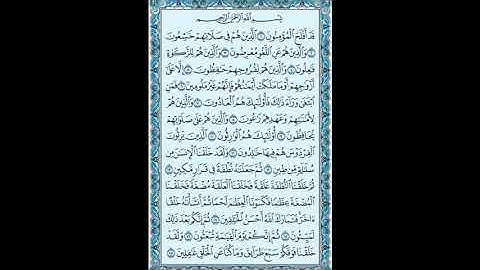 بِسْمِ اللَّهِ الرَّحْمَٰنِ الرَّحِيمِ
قَدْ أَفْلَحَ الْمُؤْمِنُونَ ١ الَّذِينَ هُمْ فِي صَلَاتِهِمْ خَاشِعُونَ
٢ وَالَّذِينَ هُمْ عَنِ اللَّغْوِ مُعْرِضُونَ ٣ وَالَّذِينَ هُمْ لِلزَّكَاةِ
فَاعِلُونَ ٤ وَالَّذِينَ هُمْ لِفُرُوجِهِمْ حَافِظُونَ ٥ إِلَّا عَلَىٰ
أَزْوَاجِهِمْ أَوْ مَا مَلَكَتْ أَيْمَانُهُمْ فَإِنَّهُمْ غَيْرُ مَلُومِينَ ٦ فَمَنِ
ابْتَغَىٰ وَرَاءَ ذَٰلِكَ فَأُولَٰئِكَ هُمُ الْعَادُونَ ٧ وَالَّذِينَ هُمْ
لِأَمَانَاتِهِمْ وَعَهْدِهِمْ رَاعُونَ ٨ وَالَّذِينَ هُمْ عَلَىٰ صَلَوَاتِهِمْ
يُحَافِظُونَ ٩ أُولَٰئِكَ هُمُ الْوَارِثُونَ ١٠ الَّذِينَ يَرِثُونَ
الْفِرْدَوْسَ هُمْ فِيهَا خَالِدُونَ ١١ وَلَقَدْ خَلَقْنَا الْإِنْسَانَ مِنْ
سُلَالَةٍ مِنْ طِينٍ ١٢ ثُمَّ جَعَلْنَاهُ نُطْفَةً فِي قَرَارٍ مَكِينٍ ١٣
ثُمَّ خَلَقْنَا النُّطْفَةَ عَلَقَةً فَخَلَقْنَا الْعَلَقَةَ مُضْغَةً فَخَلَقْنَا
الْمُضْغَةَ عِظَامًا فَكَسَوْنَا الْعِظَامَ لَحْمًا ثُمَّ أَنْشَأْنَاهُ خَلْقًا
آخَرَ فَتَبَارَكَ اللَّهُ أَحْسَنُ الْخَالِقِينَ ١٤ ثُمَّ إِنَّكُمْ بَعْدَ ذَٰلِكَ
لَمَيِّتُونَ ١٥ ثُمَّ إِنَّكُمْ يَوْمَ الْقِيَامَةِ تُبْعَثُونَ ١٦ وَلَقَدْ
خَلَقْنَا فَوْقَكُمْ سَبْعَ طَرَائِقَ وَمَا كُنَّا عَنِ الْخَلْقِ غَافِلِينَ ١٧